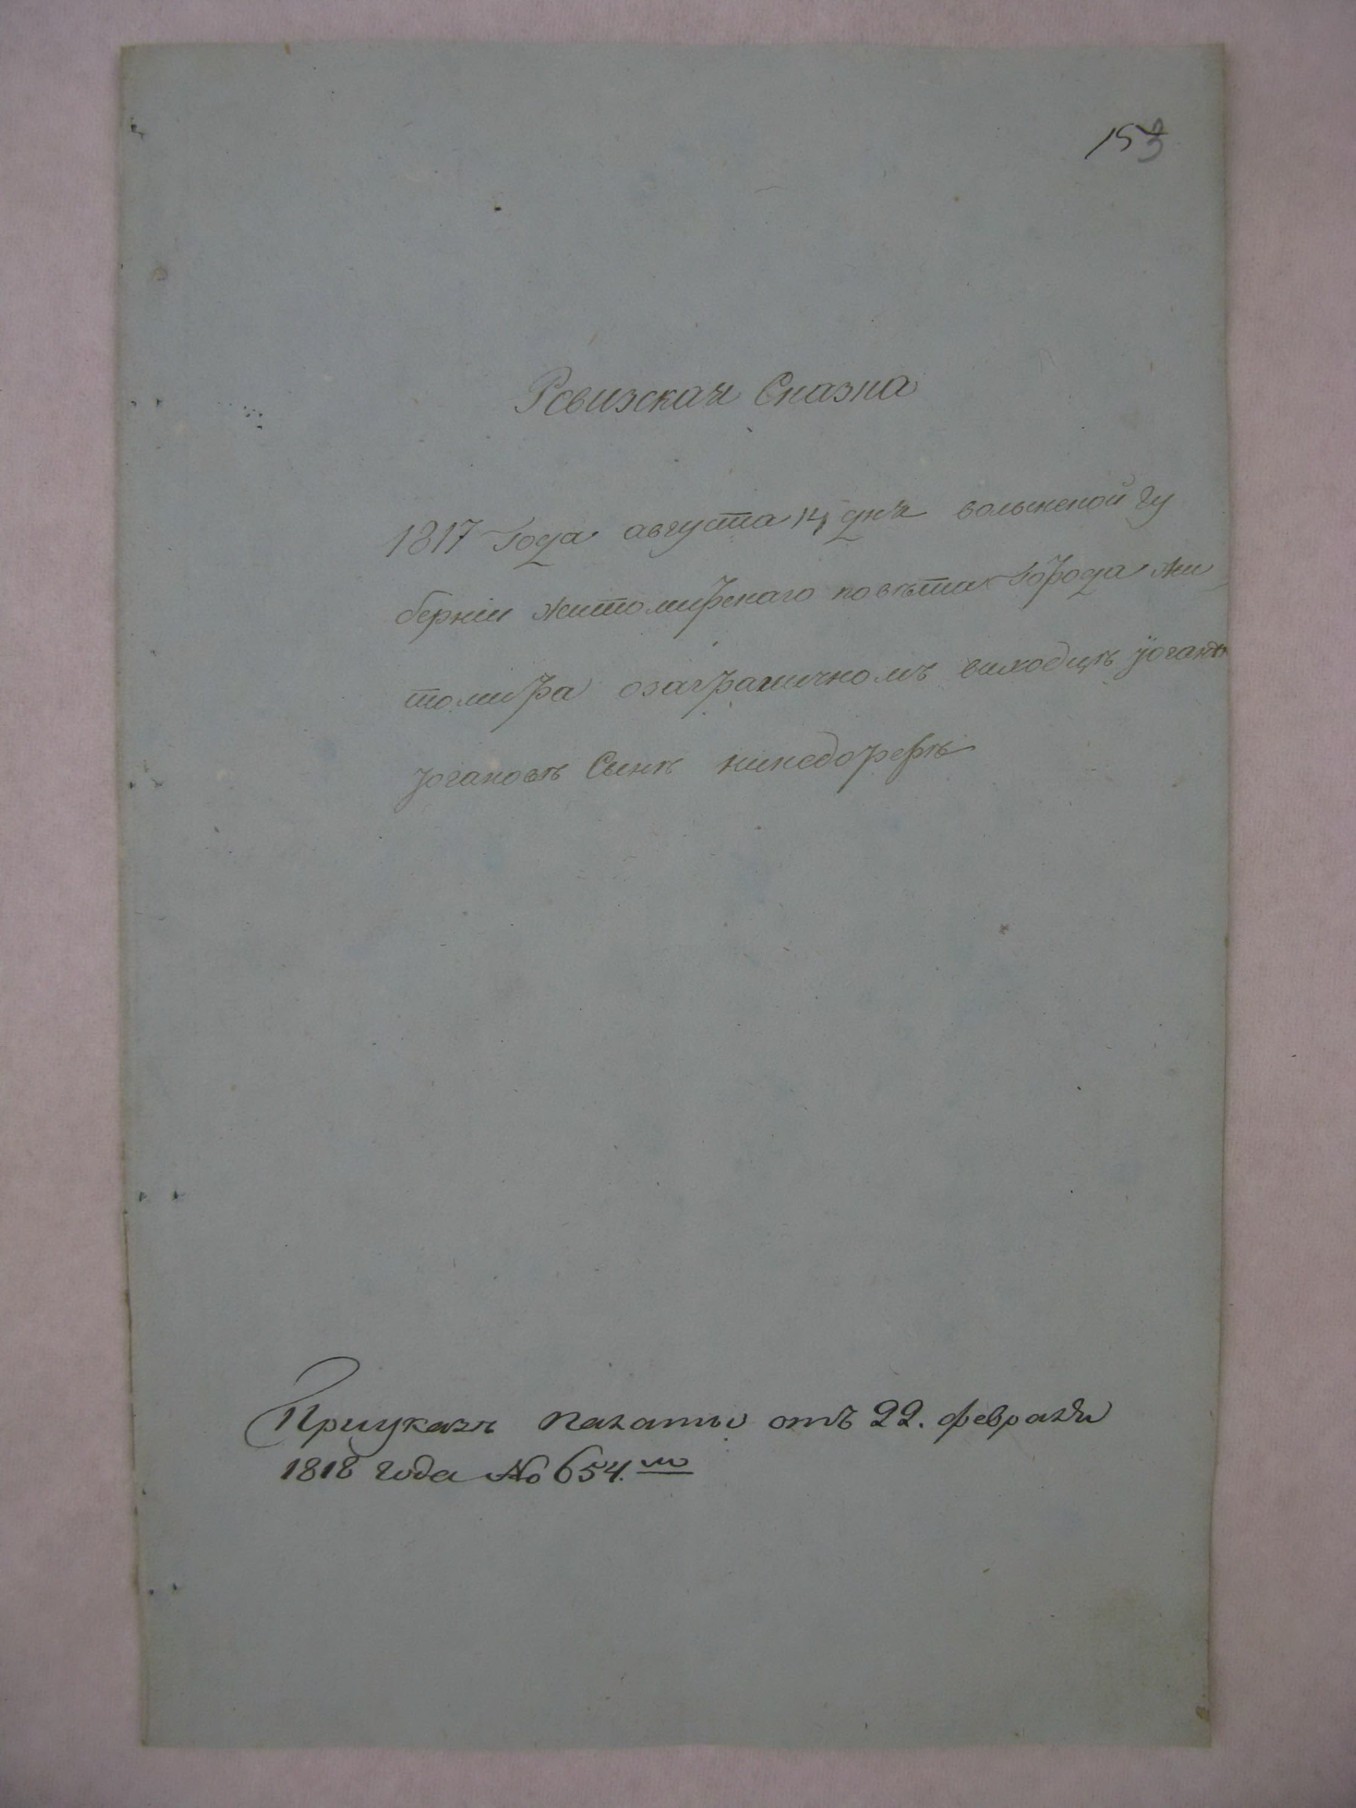 153
Ревизская Сказка
1817 Года августа 14 дня волынской гу
бернїи житомирского повѣта Города жи
томира озаграничномъ виходцѣ
Сынѣ
При указѣ палаты отъ 22. февраля
1818 года No 654.мъ